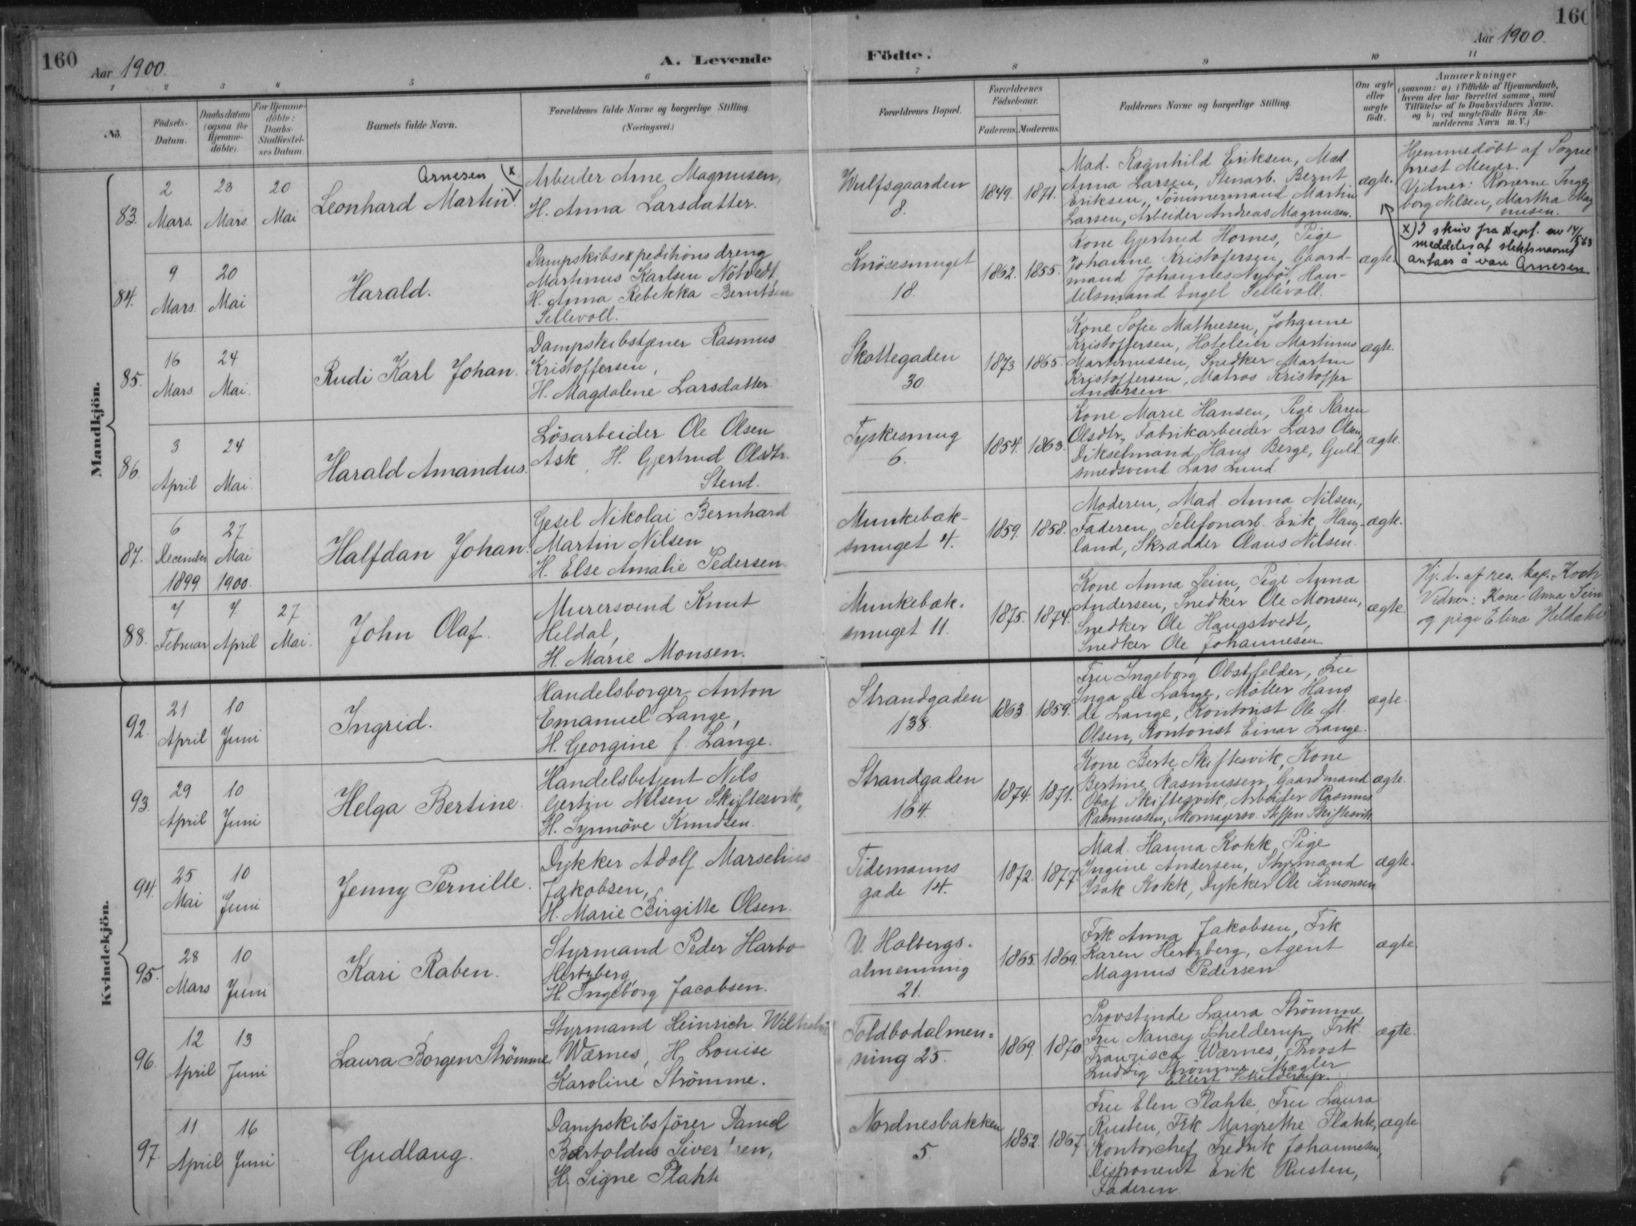 160
Aar 1900.
A. Levende
Födte.
Aar 1900.
160
1 2 3 4 5 6 7 8 9 10 11
No.
Födsels-
Datum.
Daabsdatum
(ogsaa for
Hjemme-
döbte).
For Hjemme-
döbte:
Daabs-
Stadfæstel-
ses Datum.
Barnets fulde Navn.
Forældrenes fulde Navne og borgerlige Stilling.
(Næringsvei.)
Forældrenes Bopæl.
Forældrenes
Födselsaar.
Faderens. Moderens.
Faddernes Navne og borgerlige Stilling.
Om ægte
eller
uægte
født.
Anmærkninger
(saasom: a) i Tilfælde af Hjemmedaab,
hvem der har forrettet samme, med
Tilföielse af to Daabsvidners Navne,
og b) ved uægtefödte Börn An-
melderens Navn m. V.)
Mandkjön.
83.
2
Mars.
23
Mars
20
Mai
Arnesen x)
Leonhard Martin
Arbeider Arne Magnusen,
H. Anna Larsdatter.
Wulfsgaarden
8.
1849. 1871.
Mad. Ragnhild Eriksen, Mad.
Anna Larsen, Stenarb. Bernt
Eriksen, Tömmermand Martin
Larsen, Arbeider Andreas Magnusen.
ægte.
Hjemmedöbt af Sogne
prest Meyer.
Vidner: Konerne Inge-
borg Nilsen, Martha Mag
nusen.
x) I skriv fra Depf. av 14/
meddeles at slektsnavnet
antaes å være Arnesen
84.
9
Mars.
20
Mai
Harald.
Dampskibsexpeditionsdreng
Martinus Karlsen Nötvedt
H. Anna Rebekka Berntsen
Sellevoll.
Knösesmuget
18.
1862. 1855.
Kone Gjertrud Hornes, Pige
Johanne Kristofersen, Gaard-
mand Johannes Nybö, Han-
delsmand Engel Sellevoll.
ægte.
85.
16
Mars
24
Mai.
Rudi Karl Johan.
Dampskibstjener Rasmus
Kristoffersen,
H. Magdalene Larsdatter
Skottegaden
30.
1873 1865
Kone Sofie Mathiesen, Johanne
Kristoffersen, Hoteleier Martinus
Martinussen, Snedker Martin
Kristoffersen, Matros Kristoffer
Andersen
ægte.
86.
3
April
24
Mai.
Harald Amandus.
Lösarbeider Ole Olsen
Ask, H. Gjertrud Olsdtr.
Stend.
Tyskesmug
6.
1854. 1863.
Kone Marie Hansen, Pige Karen
Olsdtr, Fabrikarbeider Lars Olsen,
Dikselmand Hans Berge, Guld
smedsvend Lars Lund
ægte.
87.
6
December
1899
27
Mai
1900.
Halfdan Johan.
Gesel Nikolai Bernhard
Martin Nilsen
H. Else Amalie Pedersen
Munkebæk-
smuget 4.
1859. 1858.
Moderen, Mad. Anna Nilsen,
Faderen, Telefonarb. Erik Haug
land, Skrædder Claus Nilsen.
ægte.
88.
7
Februar
7
April
27
Mai.
John Olaf.
Murersvend Knut
Heldal,
H. Marie Monsen.
Munkebæk-
smuget 11.
1875. 1874.
Kone Anna Leim, Pige Anna
Andersen, Snedker Ole Monsen,
Snedker Ole Haugstvedt,
Snedker Ole Johannesen
ægte
Hj. d. af res. kap. Koch
Vidner: Kone Anna Leim
og pige Elina Heldahl
Kvindekjön.
92.
21
April
10
Juni
Ingrid.
Handelsborger Anton
Emanuel Lange,
H. Georgine f. Lange.
Strandgaden
138
1863. 1859.
Fru Ingeborg Obstfelder, Fru
Inga de Lange, Mölter Hans
de Lange, Kontorist Ole M.
Olsen, Kontorist Einar Lange.
ægte.
93.
29
April
10
Juni
Helga Bertine.
Handelsbetjent Nils
Gertin Nilsen Skiftesvik,
H. Synnöve Knudsen.
Strandgaden
164.
1874. 1871.
Kone Berte Skiftesvik, Kone
Bertine Rasmussen, Gaardmand
Olaf Skiftesvik, Arbeider Rasmus
Rasmussen, Steffen Skiftesvik
ægte.
94.
25
Mai
10
Juni
Jenny Pernille.
Dykker Adolf Marselius
Jakobsen,
H. Marie Birgitte Olsen.
Tidemanns
gade 14.
1872. 1877
Mad. Hanna Kokk, Pige
Ingine Andersen, Styrmand
Isak Kokk, Dykker Ole Simonsen
ægte.
95.
28
Mars
10
Juni
Kari Raben.
Styrmand Peder Harbo
Hertzberg,
H. Ingeborg Jacobsen.
V. Holbergs-
almenning
21.
1865. 1869.
Frk Anna Jakobsen, Frk
Karen Hertzberg, Agent
Magnus Pedersen
ægte
96.
12
April
13
Juni
Laura Borgen Strömme
Styrmand Heinrich Wilhelm
Wærnes, H. Louise
Karoline Strömme.
Toldbodalmen-
ning 25.
1869. 1870
Provstinde Laura Strömme
Fru Nancy Schelderup, Frk.
Franzisca Wærnes, Provst
Ludvig Strömme, Mægler
Ellert Schelderup.
ægte.
97.
11
April
16
Juni
Gudlaug.
Dampskibsförer Daniel
Bertoldus Siversen,
H. Signe Plahte
Nordnesbakken
5.
1852. 1867
Fru Elen Plahte, Fru Laura
Rusten, Frk Margrethe Plahte,
Kontorchef Fredrik Johannesen,
Disponent Erik Rusten,
Faderen
ægte